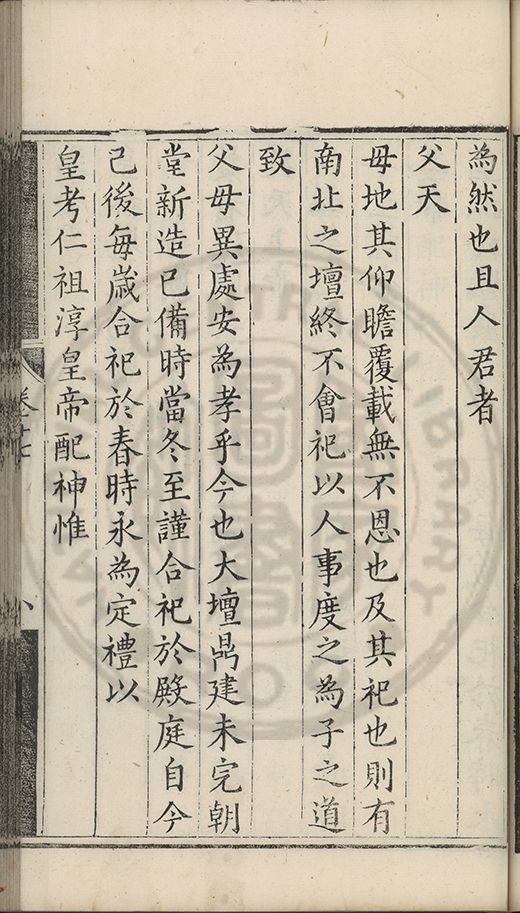 為然也且人君者
父天
母地其仰瞻覆載無不恩也及其祀也則有
南北之壇終不會祀以人事度之為子之道
致
父母異處安為孝乎今也大壇鼎建未完朝
堂新造已備時當冬至謹合祀於殿庭自今
已後每歲合祀於春時永為定禮以
皇考仁祖淳皇帝配神惟
卷十七
八